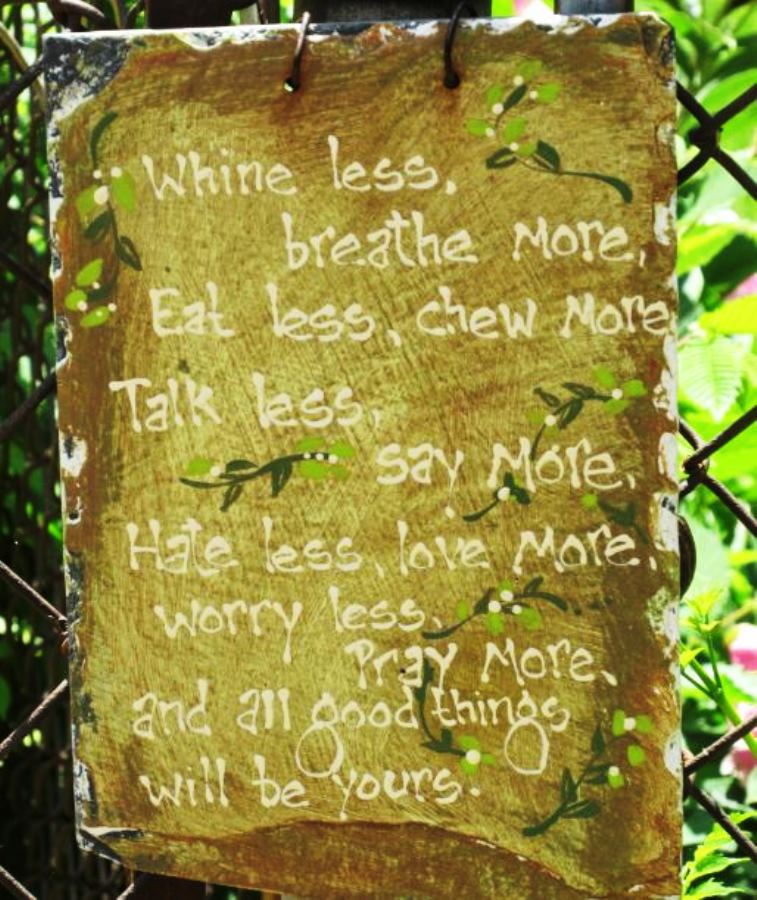 Whine less,
breathe More,
Eat less, chew More
Talk less,
say More,
Hate less, love More,
worry less,
Pray More,
and all good things
will be yours.